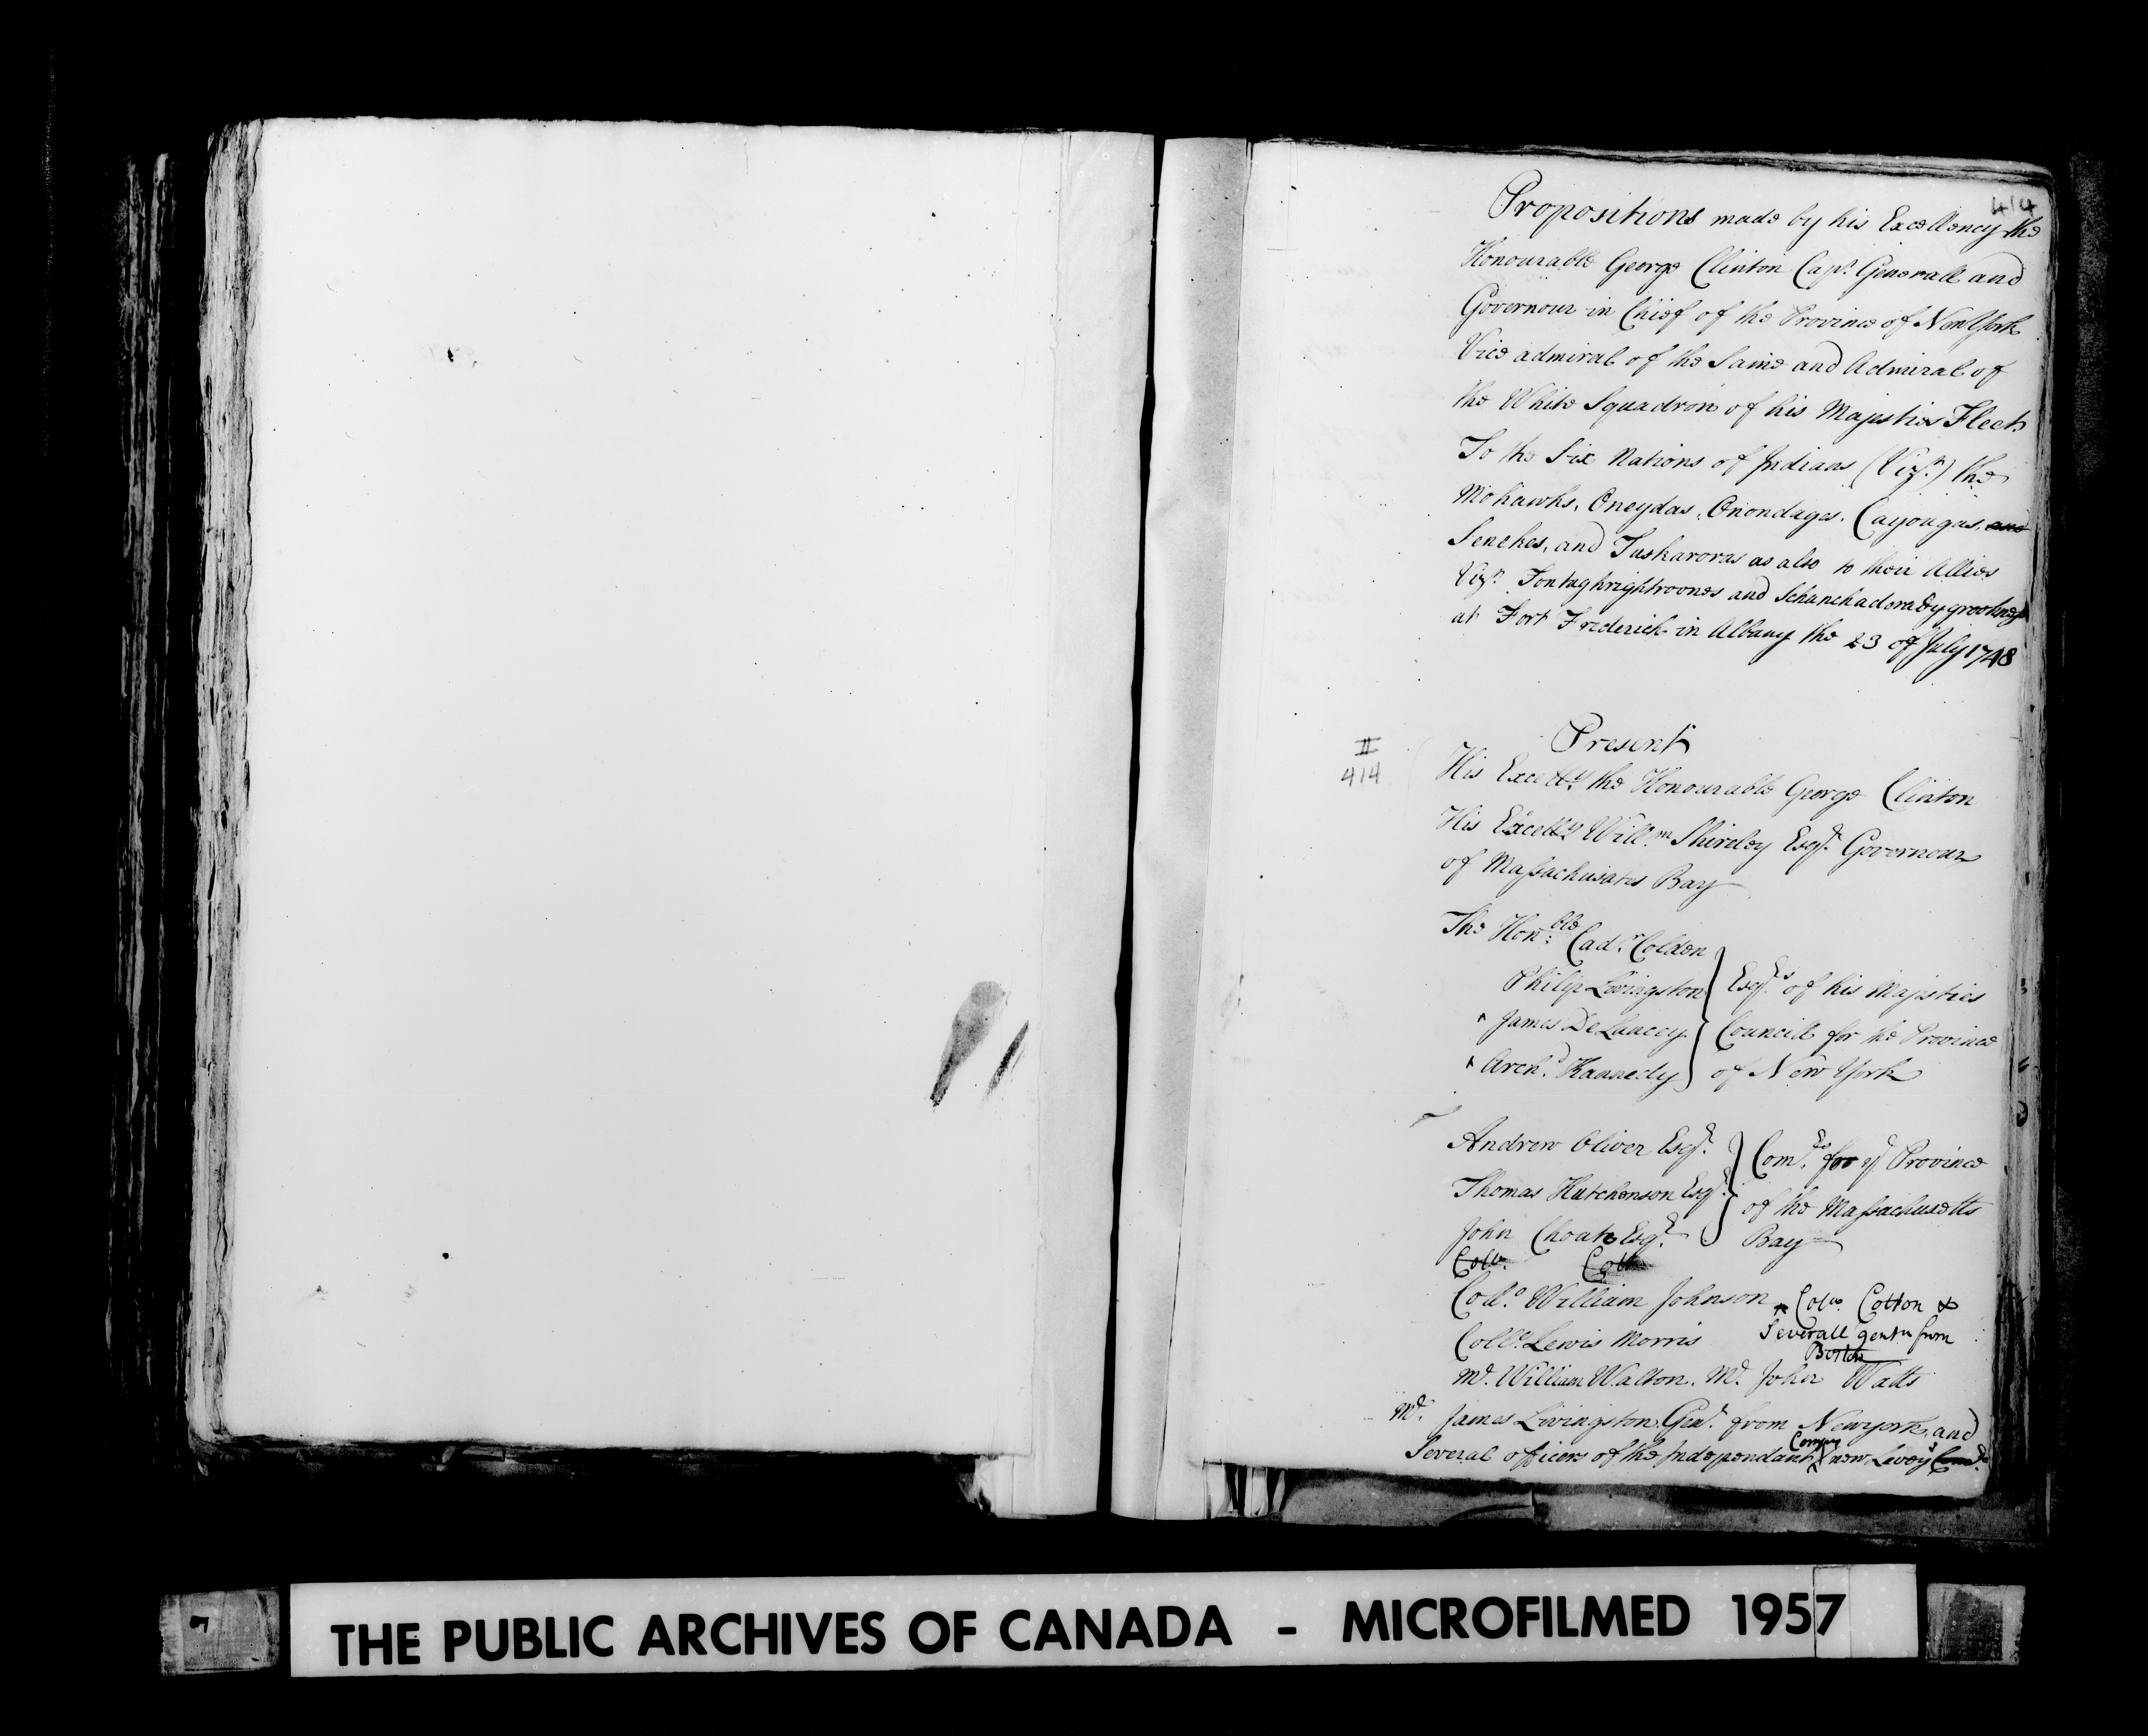 414
Propositions made by his Excellency the
Honourable George Clinton Capt. Generall and
Governour in Chief of the Province of New York
Vice admiral of the Same and Admiral of
the White Squadron of his Majesties Fleet
To the Six Nations of Indians (Vizt.) the
Mohawks, Oneydas, Onondages, Cayougas, and
Senekes, and Tuskaroras as also to their Allies
Vizt. and
at Fort Frederick in Albany the 23 of July 1748
Present
II
414
His Excelly. the Honourable George Clinton
His Excelly Willm. Shirley Esqr. Governour
of Massachusates Bay
The Honble: Cadr. Colden
Philip Livingston
James De Lancey
Archd. Kannedy
Esqrs. of his Majesties
Councill for the Province
of New York
Andrew Oliver Esqr.
Thomas Hutchenson Esqr.
John Choate Esqr.
Comrs. for ye Province
of the Massachusetts
Bay
Collo. Coll
Collo. William Johnson Collo. Cotton &
Severall gentn from
Boston
Collo. Lewis Morris
Mr. William Walton. Mr. John Watts
Mr. James Livingston Genr. from Newyork, and
Several officers of the Independant Compys new Leveys
THE PUBLIC ARCHIVES OF CANADA - MICROFILMED 1957